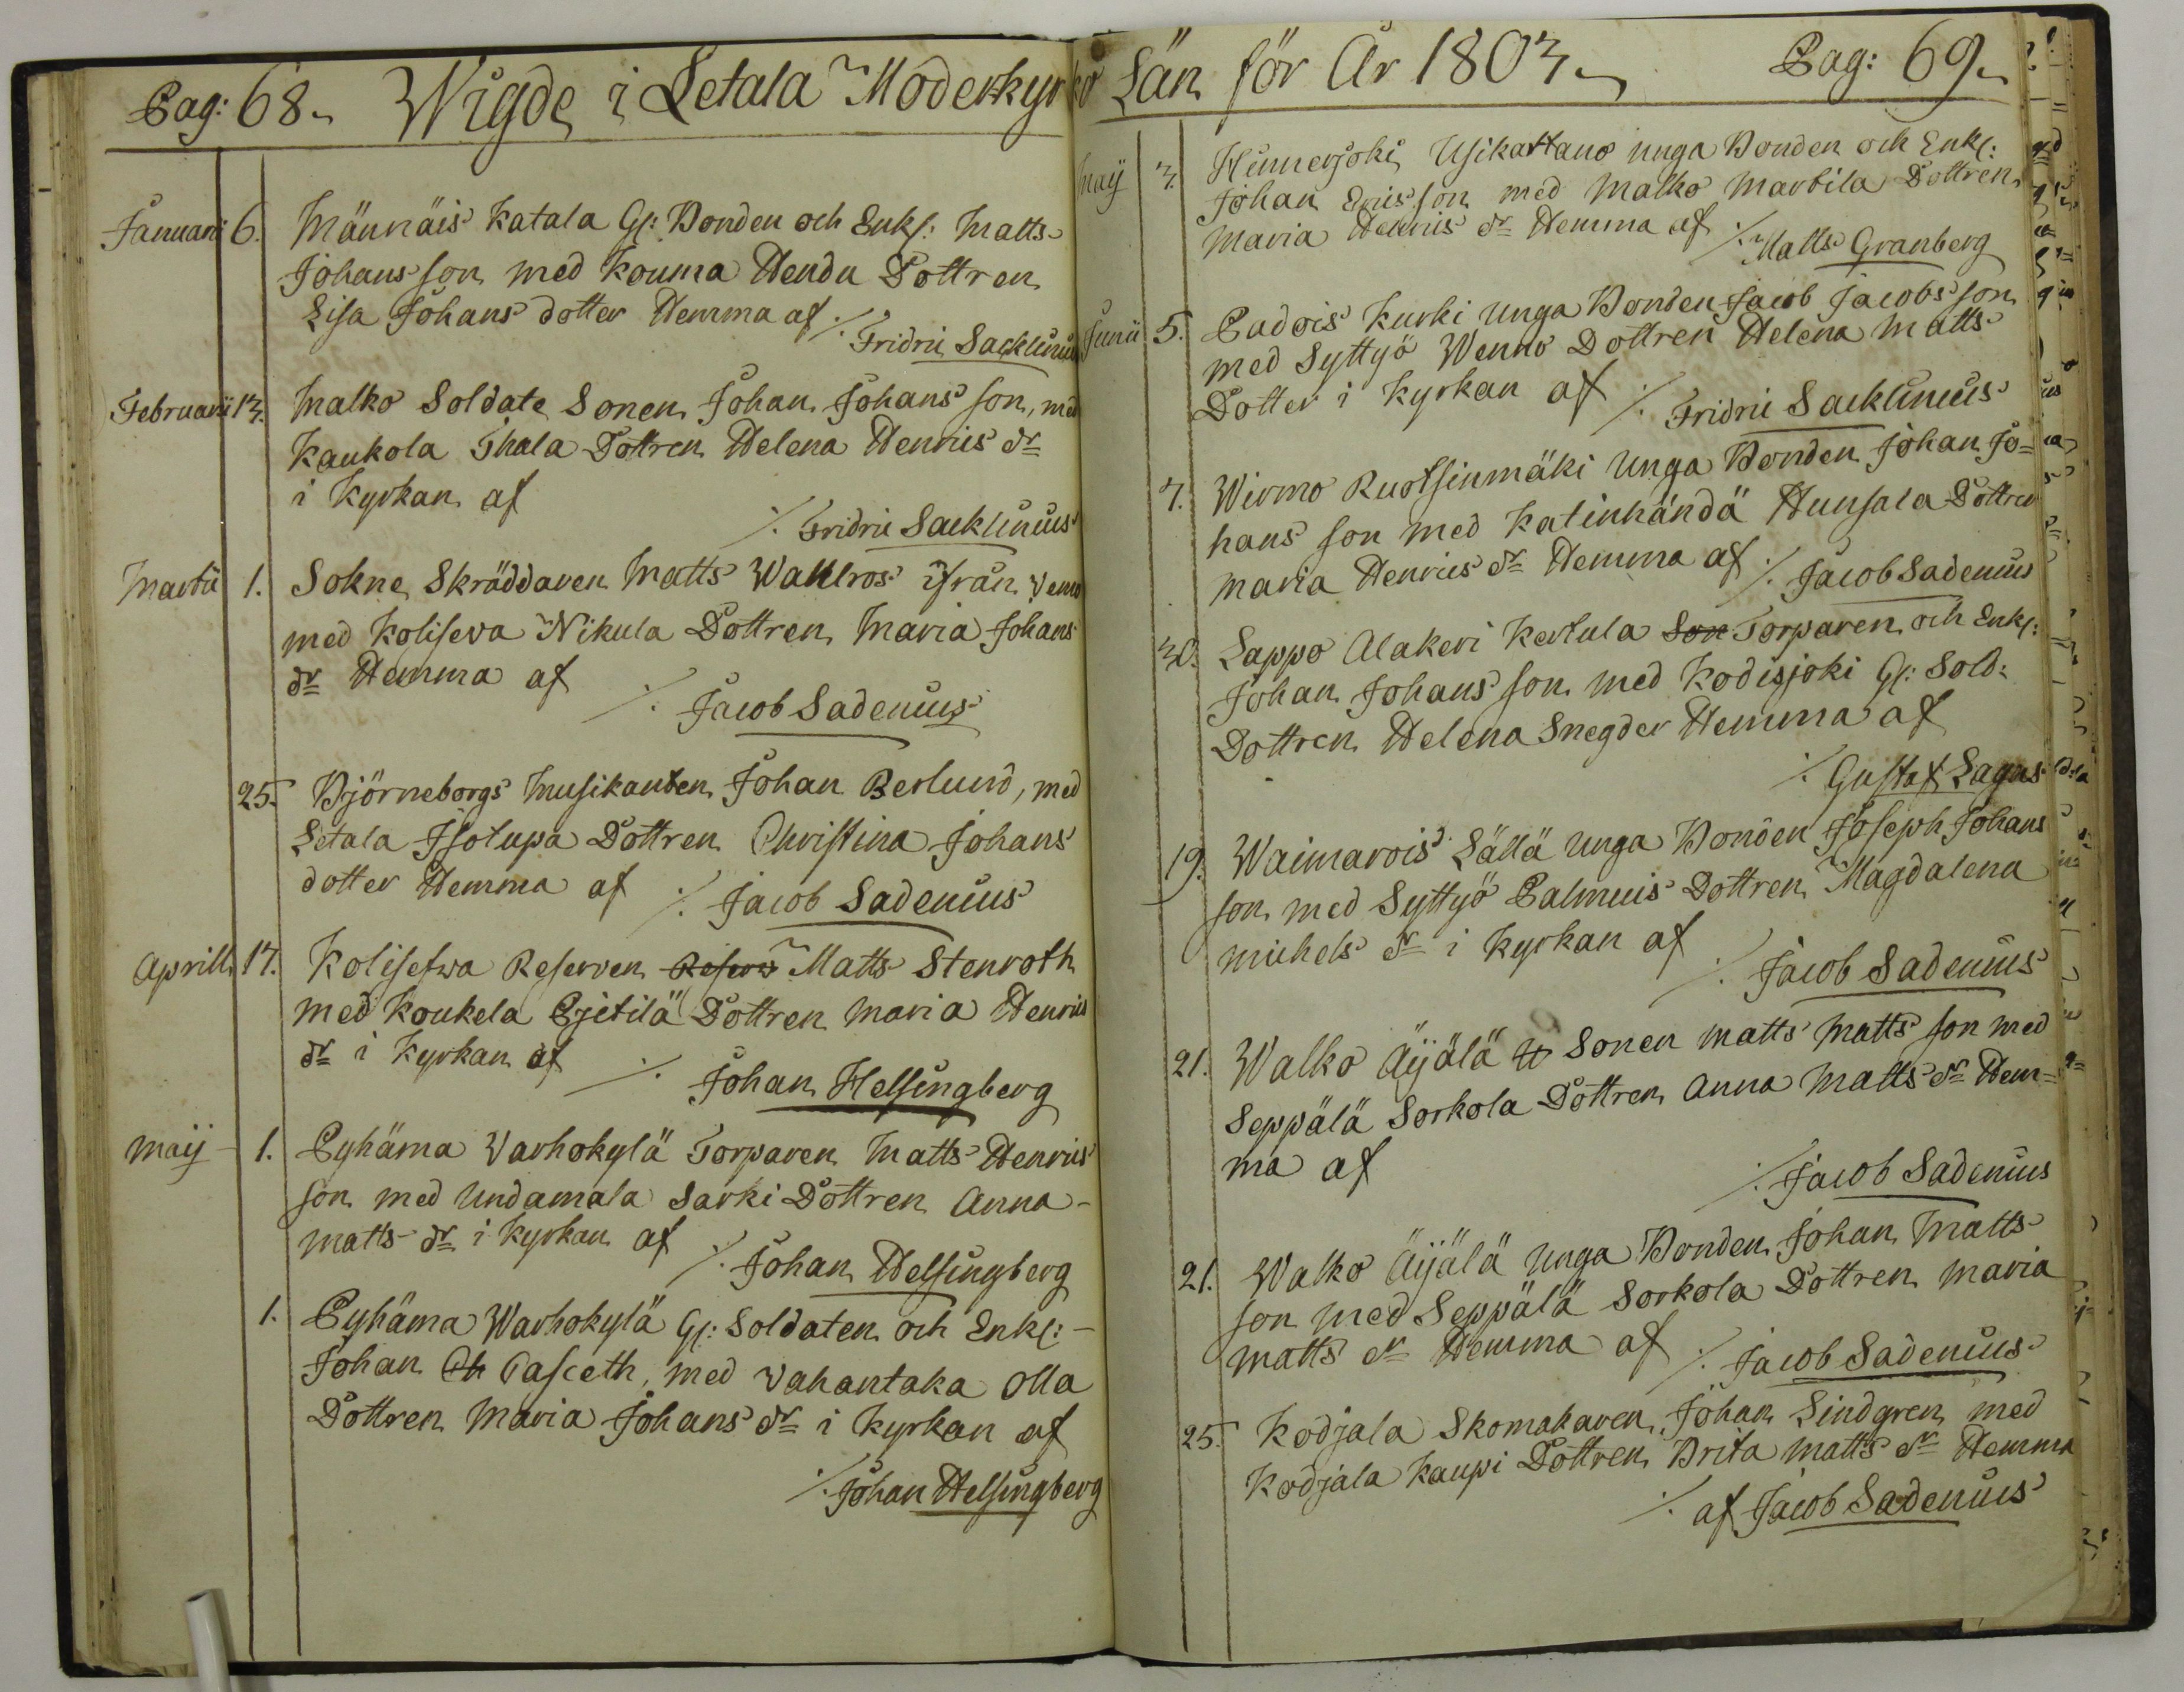 Pag: 68. Wigde i Letala Moderkyrko Län för År 1803. Pag: 69.
Januarii 6. Männäis Katala Gl: Bonden och Enkl: Matts
Johans son med Kouma Hendu Dottren
Lisa Johans dotter Hemma af
/. Fridric Sacklinius
Februarii 13. Malko Soldate Sonen Johan Johans son, med
Kaukola Ihala Dottren Helena Henrics dr
i Kyrkan af
/. Fridric Sacklinius
Martii 1. Sokne Skräddaren Matts Wahlros ifrån Vemo
med Koliseva Nikula Dottren Maria Johans
dr Hemma af
/. Jacob Sadenius
25. Björneborgs Musikanten Johan Berlund, med
Letala Isotupa Dottren Christina Johans
dotter Hemma af /. Jacob Sadenius
Aprill 17. Kolisefwa Reserven Reserv Matts Stenroth
med Koukela Pjetilä Dottren Maria Henrics
dr i Kyrkan af
/. Johan Helsingberg
Maij 1. Pyhäma Varhokylä Torparen Matts Henrics
son med Undamala Sarki Dottren Anna
Matts dr i Kyrkan af
/. Johan Helsingberg
1. Pyhäma Warhokylä Gl: Soldaten och Enkl:
Johan Casceth, med Vahantaka Olla
Dottren Maria Johans dr i Kyrkan af
/. Johan Helsingberg
Maij 3. Hinnerjoki Usikartano unga Bonden och Enkl:
Johan Erics son med Malko Martila Dottren
Maria Henrics dr Hemma af
/. Matts Granberg
Junii 5. Padois Kurki unga Bonden Jacob Jacobs son
med Syttyö Wenno Dottren Helena Matts
Dotter i Kyrkan af
/. Fridric Sacklinius
7. Wirmo Ruotsinmäki Unga Bonden Johan Jo=
hans son med Katinhändä Hunsala Dottren
Maria Henrics dr Hemma af /. Jacob Sadenius
30. Lappo Alakeri Kertula Son Torparen och Enkl:
Johan Johans son med Kodisjoki Gl: Sold:
Dottren Helena Snegder Hemma af
/. Gustaf Lagus
19. Waimarois Lällä unga Bonden Joseph Johans
son med Syttyö Palmuis Dottren Magdalena
Michels dr i Kyrkan af
/. Jacob Sadenius
21. Walko Äijälä Sonen Matts Matts son med
Seppälä Sorkola Dottren Anna Matts dr Hem=
ma af
/. Jacob Sadenius
21. Walko Äijälä unga Bonden Johan Matts
son med Seppälä Sorkola Dottren Maria
Matts dr Hemma af /. Jacob Sadenius
25. Kodjala Skomakaren Johan Lindgren med
Kodjala Kaupi Dottren Brita Matts dr Hemma
/. af Jacob Sadenius